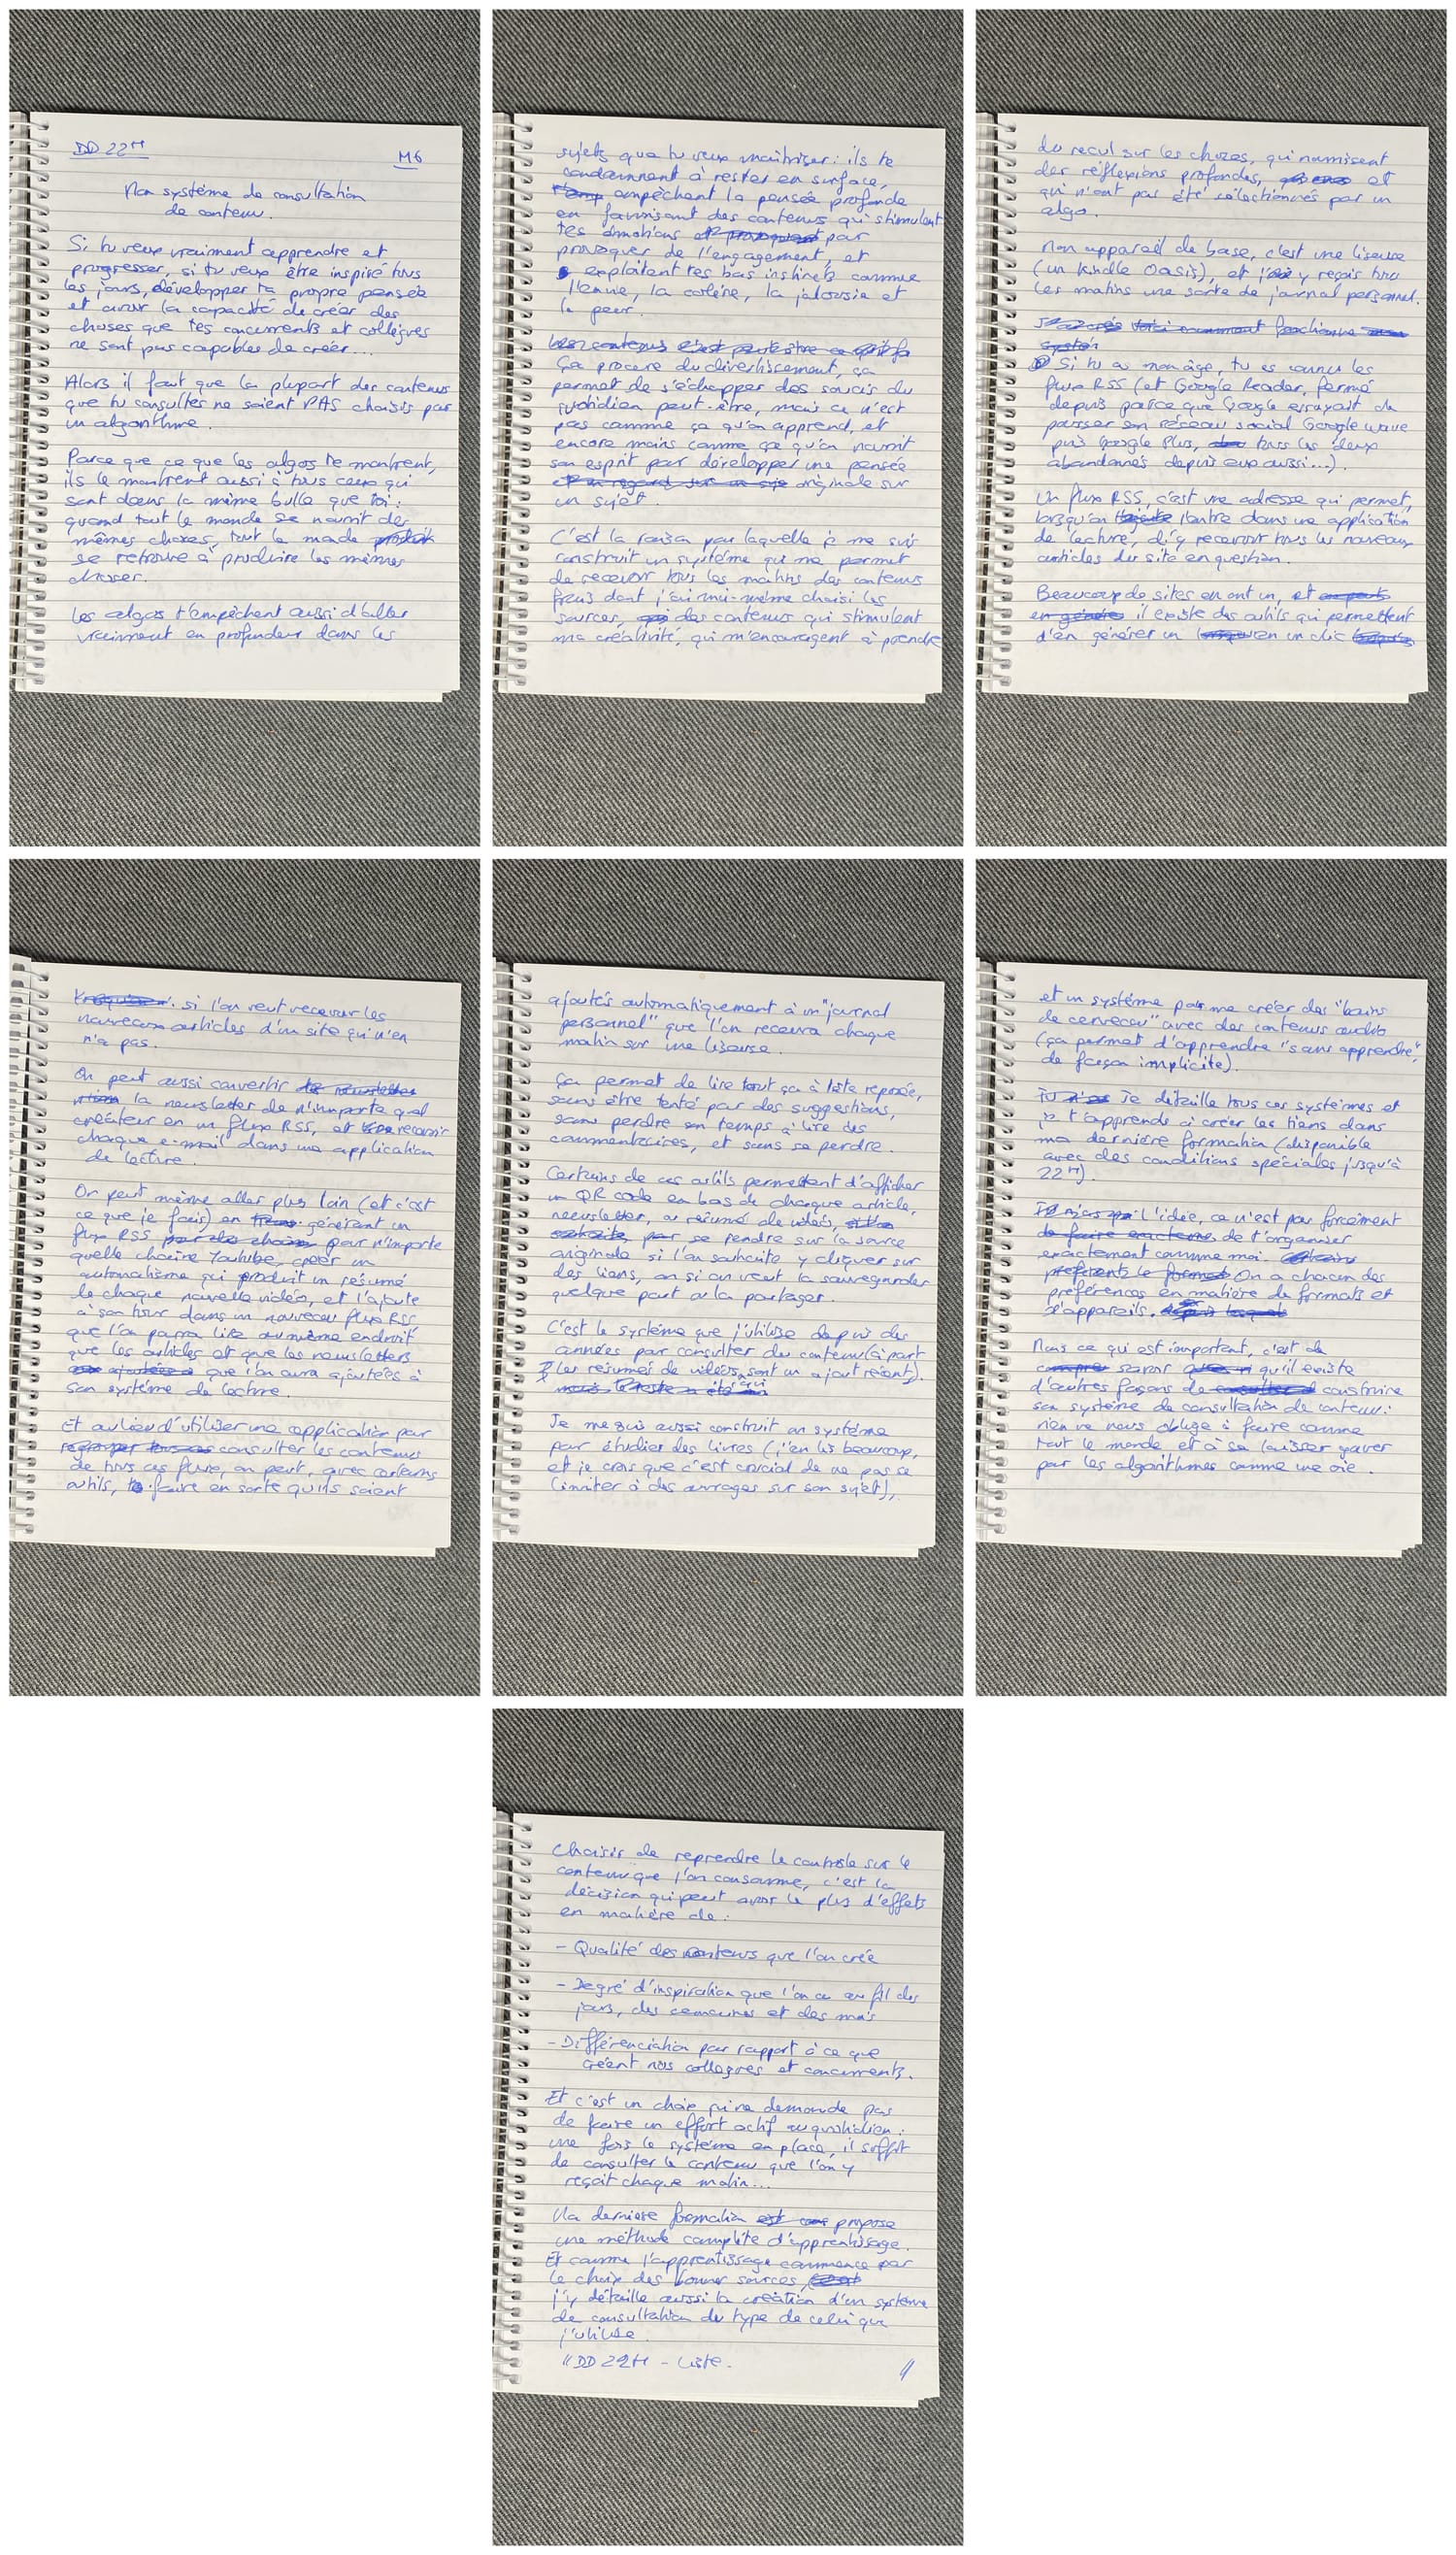 DD 22H
M6
Mon système de consultation
de contenu.
Si tu veux vraiment apprendre et
progresser, si tu veux être inspiré tous
les jours, développer ta propre pensée
et avoir la capacité de créer des
choses que tes concurrents et collègues
ne sont pas capables de créer...
Alors il faut que la plupart des contenus
que tu consultes ne soient PAS choisis par
un algorithme.
Parce que ce que les algos te montrent,
ils le montrent aussi à tous ceux qui
sont dans la même bulle que toi :
quand tout le monde se nourrit des
mêmes choses, tout le monde produit
se retrouve à produire les mêmes
choses.
Les algos t'empêchent aussi d'aller
vraiment en profondeur dans les
sujets que tu veux maîtriser : ils te
condamnent à rester en surface,
t'emp empêchent la pensée profonde
en fournissant des contenus qui stimulent
tes émotions et provoquent pour
provoquer de l'engagement, et
exploitent tes bas instincts comme
l'envie, la colère, la jalousie et
la peur.
Les contenus c'est peut-être ce qu'il fa
Ça procure du divertissement, ça
permet de s'échapper des soucis du
quotidien peut-être, mais ce n'est
pas comme ça qu'on apprend, et
encore moins comme ça qu'on nourrit
son esprit pour développer une pensée
et un regard sur un suje originale sur
un sujet.
C'est la raison pour laquelle je me suis
construit un système qui me permet
de recevoir tous les matins des contenus
frais dont j'ai moi-même choisi les
sources, qui des contenus qui stimulent
ma créativité, qui m'encouragent à prendre
du recul sur les choses, qui nourrissent
des réflexions profondes, et
qui n'ont pas été sélectionnés par un
algo.
Mon appareil de base, c'est une liseuse
(un Kindle Oasis), et j'y reçois tous
les matins une sorte de journal personnel.
J'ai créé voici comment fonctionne mon
système
Si tu as mon âge, tu as connu les
flux RSS (et Google Reader, fermé
depuis parce que Google essayait de
pousser son réseau social Google Wave
puis Google Plus, tous les deux
abandonnés depuis eux aussi...).
Un flux RSS, c'est une adresse qui permet,
lorsqu'on l'entre dans une application
de lecture, d'y recevoir tous les nouveaux
articles du site en question.
Beaucoup de sites en ont un, et on peut
en génére il existe des outils qui permettent
d'en générer un en un clic
si l'on veut recevoir les
nouveaux articles d'un site qui n'en
n'a pas.
On peut aussi convertir les newsletter
la newsletter de n'importe quel
créateur en un flux RSS, et recevoir
chaque e-mail dans une application
de lecture.
On peut même aller plus loin (et c'est
ce que je fais) en générant un
flux RSS pour des chaîne pour n'importe
quelle chaîne Youtube, créer un
automatisme qui produit un résumé
de chaque nouvelle vidéo, et l'ajoute
à son tour dans un nouveau flux RSS,
que l'on pourra lire au même endroit
que les articles et que les newsletters
que l'on aura ajoutées à
son système de lecture.
Et au lieu d'utiliser une application pour
regrouper tous ces consulter les contenus
de tous ces flux, on peut, avec certains
outils, faire en sorte qu'ils soient
ajoutés automatiquement à un "journal
personnel" que l'on recevra chaque
matin sur une liseuse.
Ça permet de lire tout ça à tête reposée,
sans être tenté par des suggestions,
sans perdre son temps à lire des
commentaires, et sans se perdre.
Certains de ces outils permettent d'afficher
un QR code en bas de chaque article,
newsletter, ou résumé de vidéo, si l'on
souhaite, pour se rendre sur la source
originale si l'on souhaite y cliquer sur
des liens, ou si on veut la sauvegarder
quelque part ou la partager.
C'est le système que j'utilise depuis des
années pour consulter du contenu (à part
les résumés de vidéos, qui sont un ajout récent).
mais le reste a été
Je me suis aussi construit un système
pour étudier des livres (j'en lis beaucoup,
et je crois que c'est crucial de ne pas se
limiter à des ouvrages sur son sujet),
et un système pour me créer des "bains
de cerveau" avec des contenus audio
(ça permet d'apprendre "sans apprendre",
de façon implicite).
Tu n'as Je détaille tous ces systèmes et
je t'apprends à créer les tiens dans
ma dernière formation (disponible
avec des conditions spéciales jusqu'à
22H).
l'idée, ce n'est pas forcément
de faire exacteme de t'organiser
exactement comme moi.
préférents le format On a chacun des
préférences en matière de formats et
d'appareils.
Mais ce qui est important, c'est de
compre savoir qu'il existe
d'autres façons de consulter d construire
son système de consultation de contenu :
rien ne nous oblige à faire comme
tout le monde, et à se laisser gaver
par les algorithmes comme une oie.
Choisir de reprendre le contrôle sur le
contenu que l'on consomme, c'est la
décision qui peut avoir le plus d'effets
en matière de :
- Qualité des contenus que l'on crée
- Degré d'inspiration que l'on a au fil des
jours, des semaines et des mois
- Différenciation par rapport à ce que
créent nos collègues et concurrents.
Et c'est un choix qui ne demande pas
de faire un effort actif au quotidien :
une fois le système en place, il suffit
de consulter le contenu que l'on y
reçoit chaque matin...
Ma dernière formation est une propose
une méthode complète d'apprentissage.
Et comme l'apprentissage commence par
le choix des bonnes sources, c'est
j'y détaille aussi la création d'un système
de consultation du type de celui que
j'utilise.
// DD 22H - Liste.
//